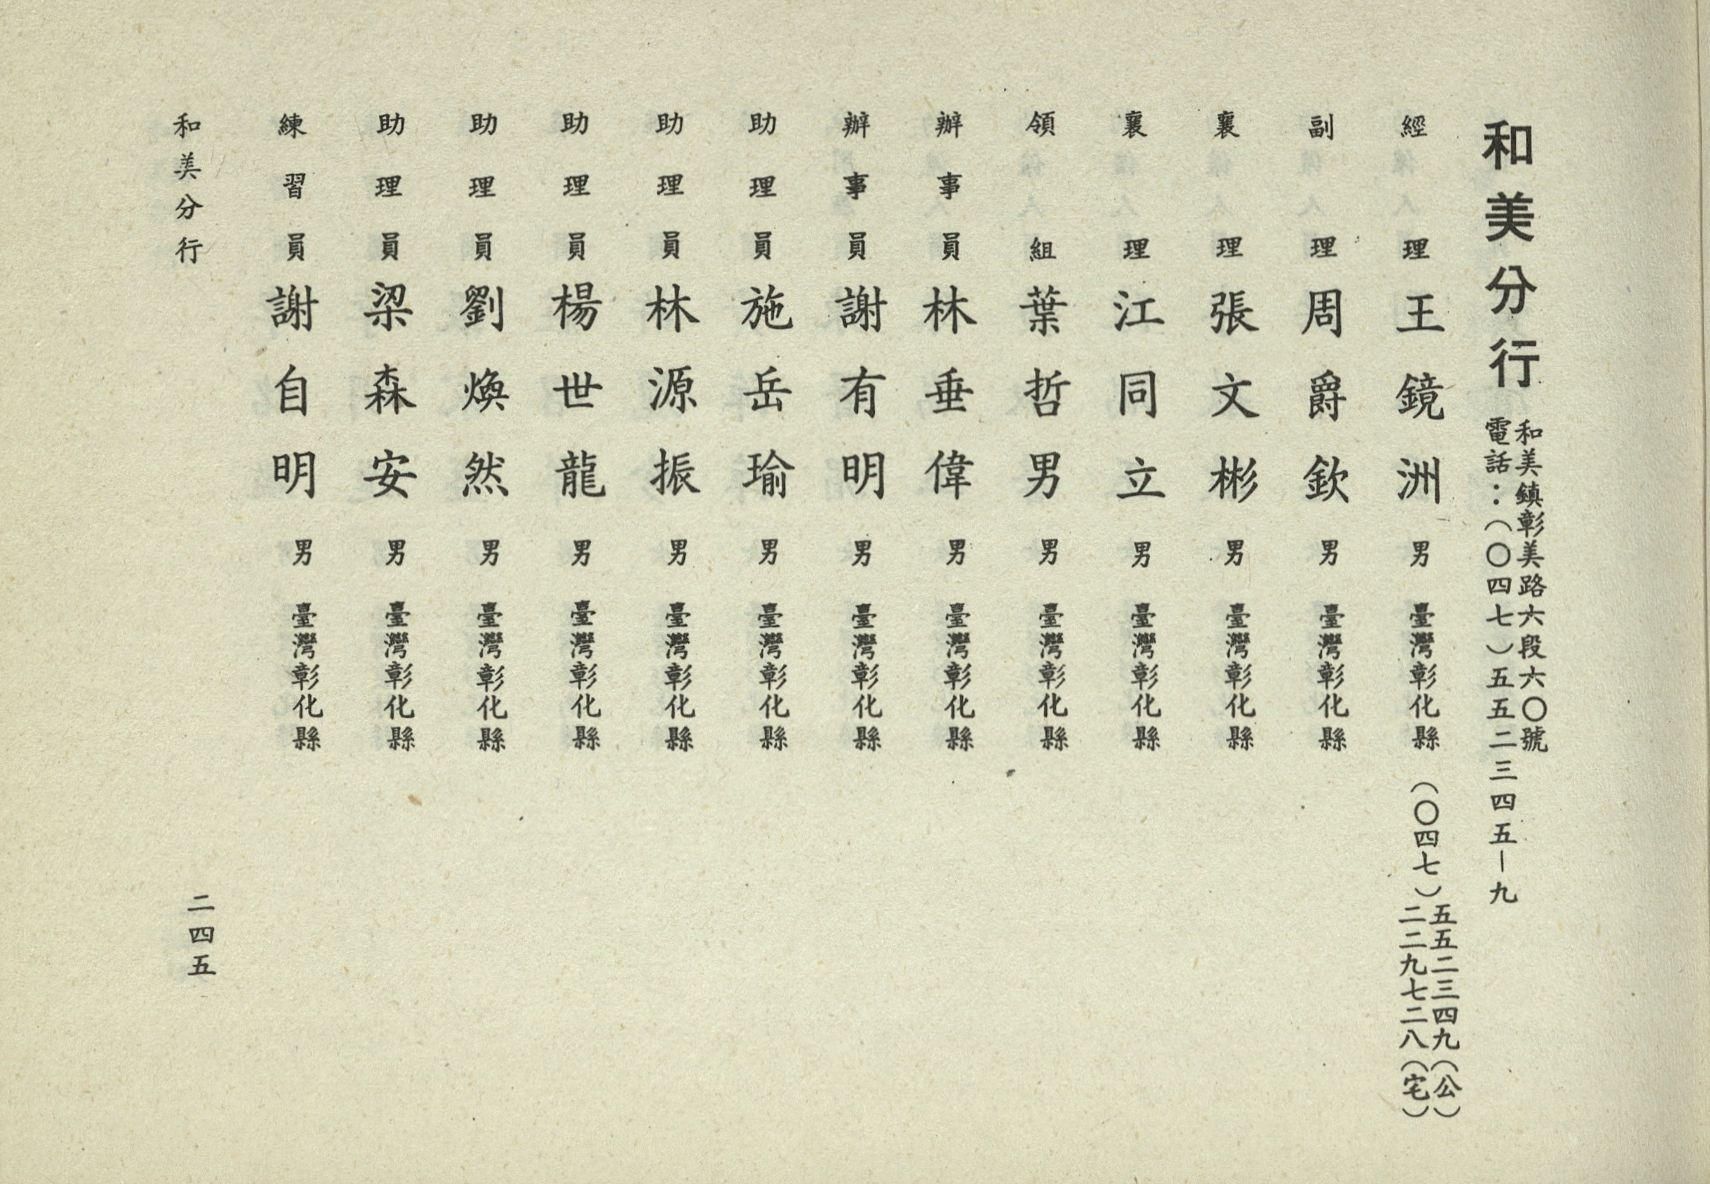 和美分行
和美鎮彰美路六段六〇號
電話：（〇四七）五五二三四五－九
經理 王鏡洲 男 臺灣彰化縣 （〇四七）五五二三四九（公）
二二九七二八（宅）
副理 周爵欽 男 臺灣彰化縣
襄理 張文彬 男 臺灣彰化縣
襄理 江同立 男 臺灣彰化縣
領組 葉哲男 男 臺灣彰化縣
辦事員 林垂偉 男 臺灣彰化縣
辦事員 謝有明 男 臺灣彰化縣
助理員 施岳瑜 男 臺灣彰化縣
助理員 林源振 男 臺灣彰化縣
助理員 楊世龍 男 臺灣彰化縣
助理員 劉煥然 男 臺灣彰化縣
助理員 梁森安 男 臺灣彰化縣
練習員 謝自明 男 臺灣彰化縣
和美分行
二四五